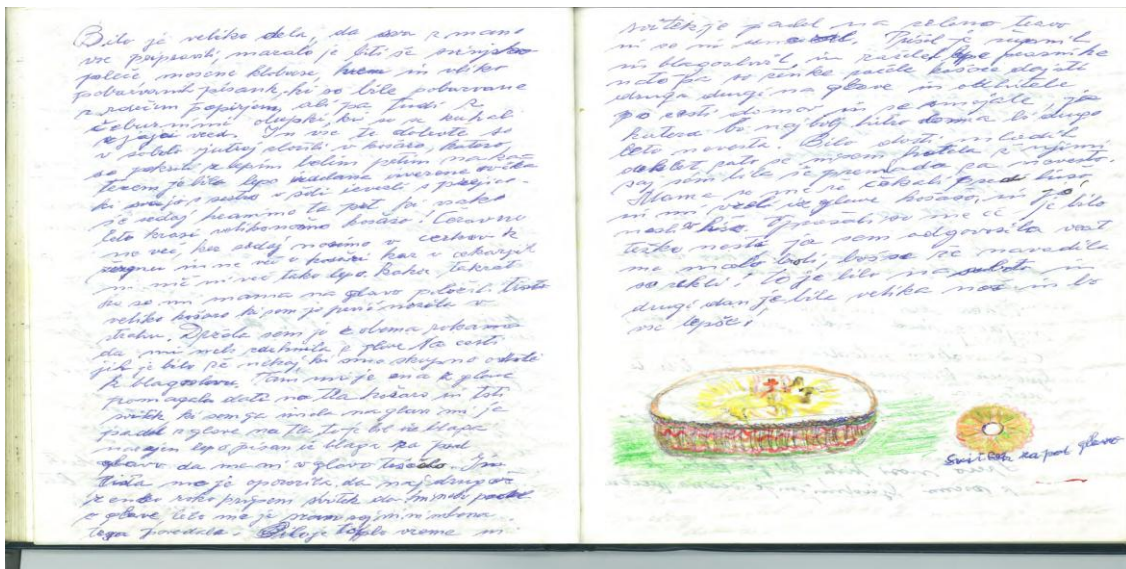 Bilo je veliko dela, da sva z mamo
vse pripravli, moralo je biti še svinjsko
pleče, mesene klobase, hren in veliko
pobarvanih pisank, ki so bile pobarvane
z rdečim papirjem, ali pa tudi z
čebulnimi olupki, ki so se kuhali
zjajci vred. In vse te dobrote so
v soboto zjutraj složili v košaro, katero,
so pokrili z lepim belim prtom na
terem je bila lepo izvezena ovčka
ki
še sedaj hranimo ta prt, foi vsako
leto krasi velikonočno košaro! Čeravno
ne več, ker sedaj nosimo v cerkev k
žegnu in ne več v košari kar v cekarjih
ni nič ni več tako lepo, kakor takrat
ko so mi mamna na glavo položili tisto
veliko košaro ki sem jo prvič nosila v
strahu. Držala sem jo z obema rokama
da mi nebi zdrknila z glave. Na cesti
jih je bilo že nekaj, ki smo skupno odšli
k blagoslovu. Tam mi je ena z glave
pomagala dati na tla košaro in tisti
svitek ki sem ga imela na glavi mi je
padel z glave na tla, to je bil iz blaga
narejen lepo pisan iz blaga za pod
glavo da me ni v glavo tiščalo. In
tista me je opozorila da naj drugač
z eno roko primem svitek da mi nebo padel
z glave, bilo me je sram saj mi ni nobena
tega povedala. Bilo je toplo vreme in
svitek je padel na zeleno travo
ni se mi umazal. Prišel je župnik
in blagoslovil, in začeli lepe pesmike
nato pa so ženske začele košare dajati
druga drugi na glave in odhitele
po cesti domov in se smejale, ja
katera bo najbolj hitro doma bo drugo
leto nevesta. Bilo jih
zato se nisem potila z njimi
saj sem bila še premlada za nevesto.
Mama so me že čakali pred hišo
in mi vzeli iz glave košaro, in jo
nesli v hišo. Vprašali so me če je bilo
težko nesti ja sem odgovorila vrat
me malo boli, boš se že navadila
so rekli! to je bilo na soboto in
drugi dan je bila velika noč in bo
še lepše!
Svitek za pod glavo